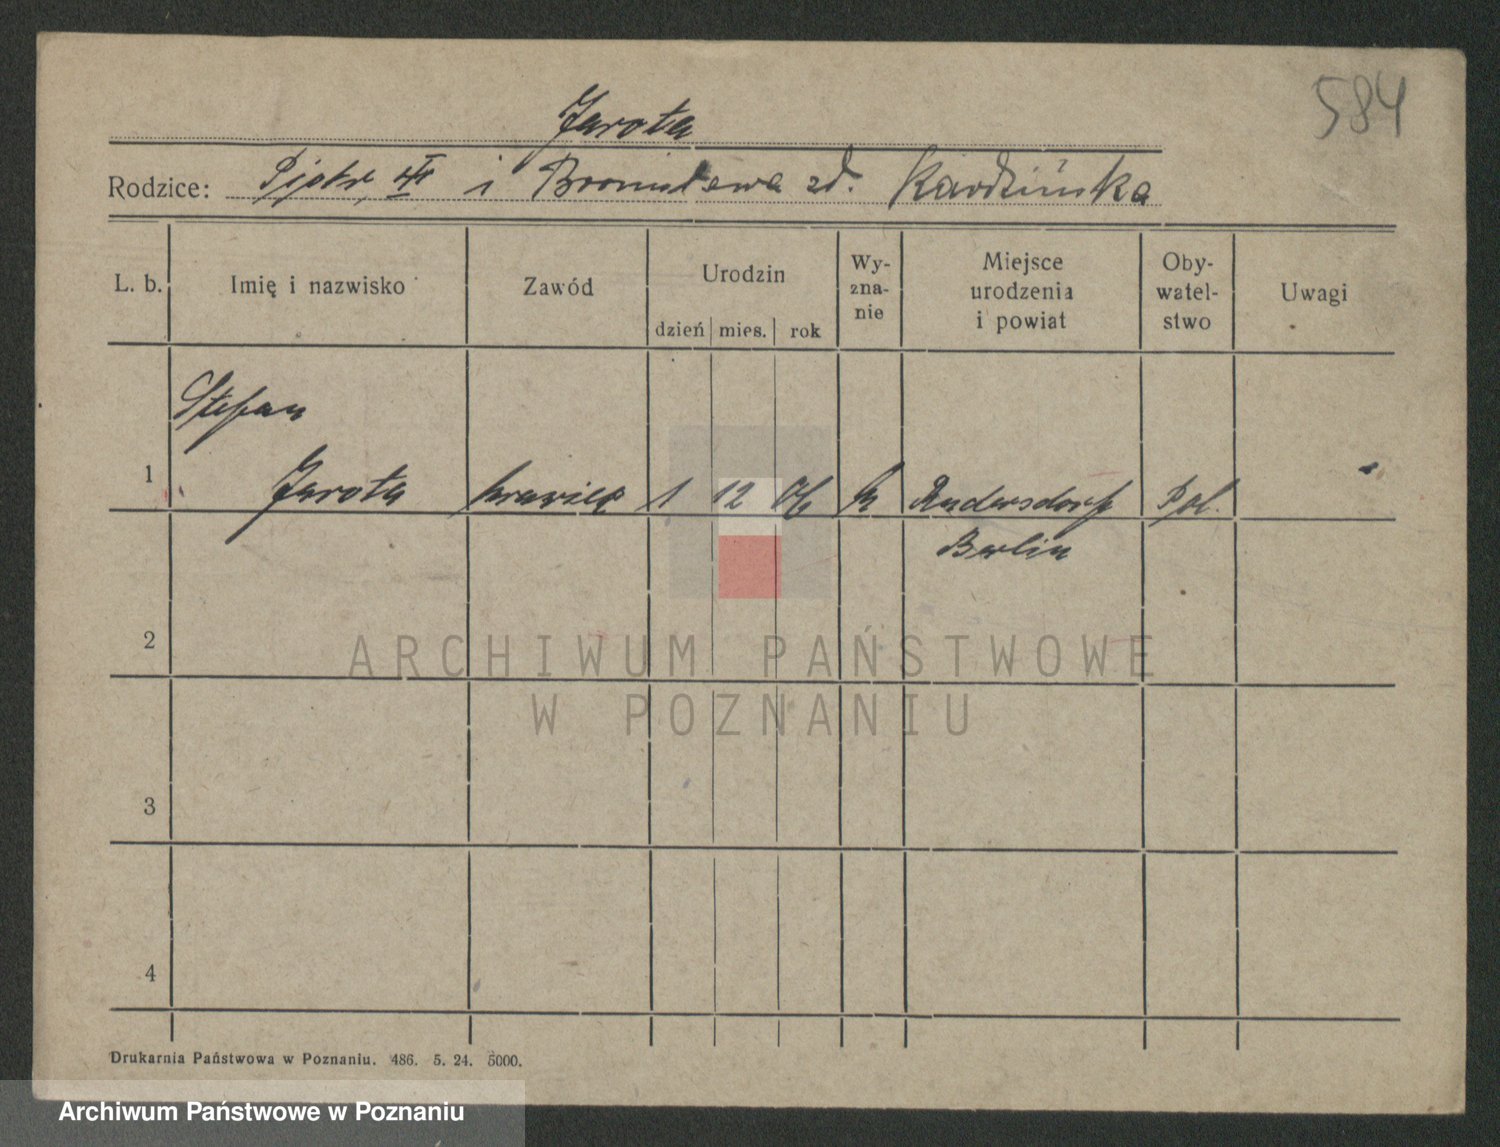 584
Jarota
Rodzice: Piotr, i Bronisława zd. Kardzińska
L. b. Imię i nazwisko Zawód Urodzin dzień mies. rok Wy-zna-nie Miejsce urodzenia i powiat Oby-watel-stwo Uwagi
Stefan
1 Jarota krawiec 1 12 06 k Rudersdorf Pol.
Berlin
2
ARCHIWUM PAŃSTWOWE
W POZNANIU
3
4
Drukarnia Państwowa w Poznaniu. 486. 5. 24. 5000.
Archiwum Państwowe w Poznaniu